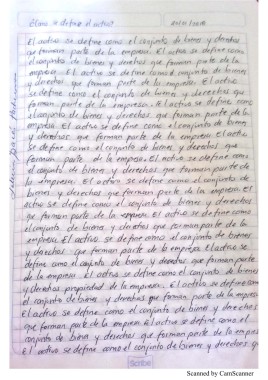 ¿Cómo se define el activo?
El activo se define como el conjunto de bienes y derechos
que forman parte de la empresa. El activo se define como
el conjunto de bienes y derechos que forman parte de la
empresa. El activo se define como el conjunto de bienes
y derechos que forman parte de la empresa. El activo
se define como el conjunto de bienes y derechos que
forman parte de la empresa. El activo se define como
el conjunto de bienes y derechos que forman parte de la
empresa. El activo se define como el conjunto de bienes
y derechos que forman parte de la empresa. El activo
se define como el conjunto de bienes y derechos que
forman parte de la empresa. El activo se define como
el conjunto de bienes y derechos que forman parte de
la empresa. El activo se define como el conjunto de
bienes y derechos que forman parte de la empresa. El
activo se define como el conjunto de bienes y derechos
que forman parte de la empresa. El activo se define como
el conjunto de bienes y derechos que forman parte de la
empresa. El activo se define como el conjunto de bienes
y derechos que forman parte de la empresa. El activo se
define como el conjunto de bienes y derechos que forman parte
de la empresa. El activo se define como el conjunto de bienes
y derechos propiedad de la empresa. El activo se define como
el conjunto de bienes y derechos que forman parte de la empresa
El activo se define como el conjunto de bienes y derechos
que forman parte de la empresa. El activo se define como el
conjunto de bienes y derechos que forman parte de la empresa
El activo se define como el conjunto de bienes y derechos q
Scribe
Scanned by CamScanner